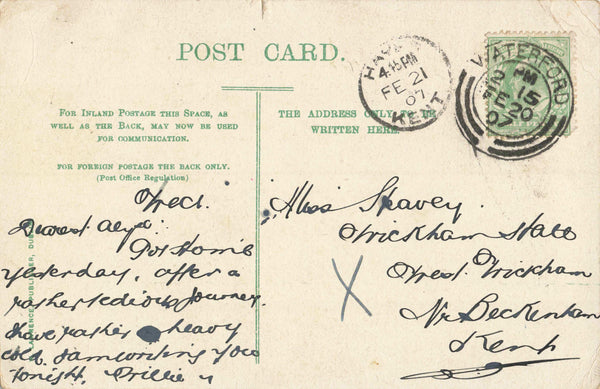 POST CARD.
FOR INLAND POSTAGE THIS SPACE, AS
WELL AS THE BACK, MAY NOW BE USED
FOR COMMUNICATION.
FOR FOREIGN POSTAGE THE BACK ONLY.
(Post Office Regulation)
THE ADDRESS ONLY TO BE
WRITTEN HERE.
4.15PM
FE 21
07
KENT
WATERFORD
PM
15
FE 20
07
Wed.
Dearest
Got Home
yesterday, after a
rather tedious journey.
Have rather heavy
cold. Am writing you
tonight. Millie
Miss Heavey.
Wickham Hall
West Wickham
Nr Beckenham
Kent
LAWRENCE, PUBLISHER, DUBLIN